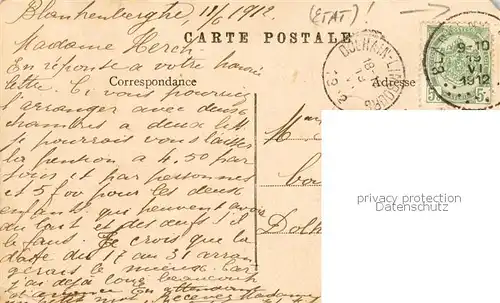 Blankenberghe, 12/6 1912.
(ETAT)!
CARTE POSTALE
Madame Herch
En réponse à votre honorée
lettre. Ci vous pourriez
Correspondance
Adresse
l'arranger avec deux
chambres a deux lits
je pourrais vous laisser
la pention a 4.50 par
jour et par personnes
et 5 f00 pour les deux
enfants. qui peuvent avoir
du lait et des œuf! il
le faut. Je crois que la
date du 17 au 31 arran
gerais le mieux. Car
j'ai déja loué beaucoup
En attendant
Recevez Madame
DOLHAIN-LIMBOURG
9-10
13
VI
1912
5
Dolh
privacy protection
Datenschutz